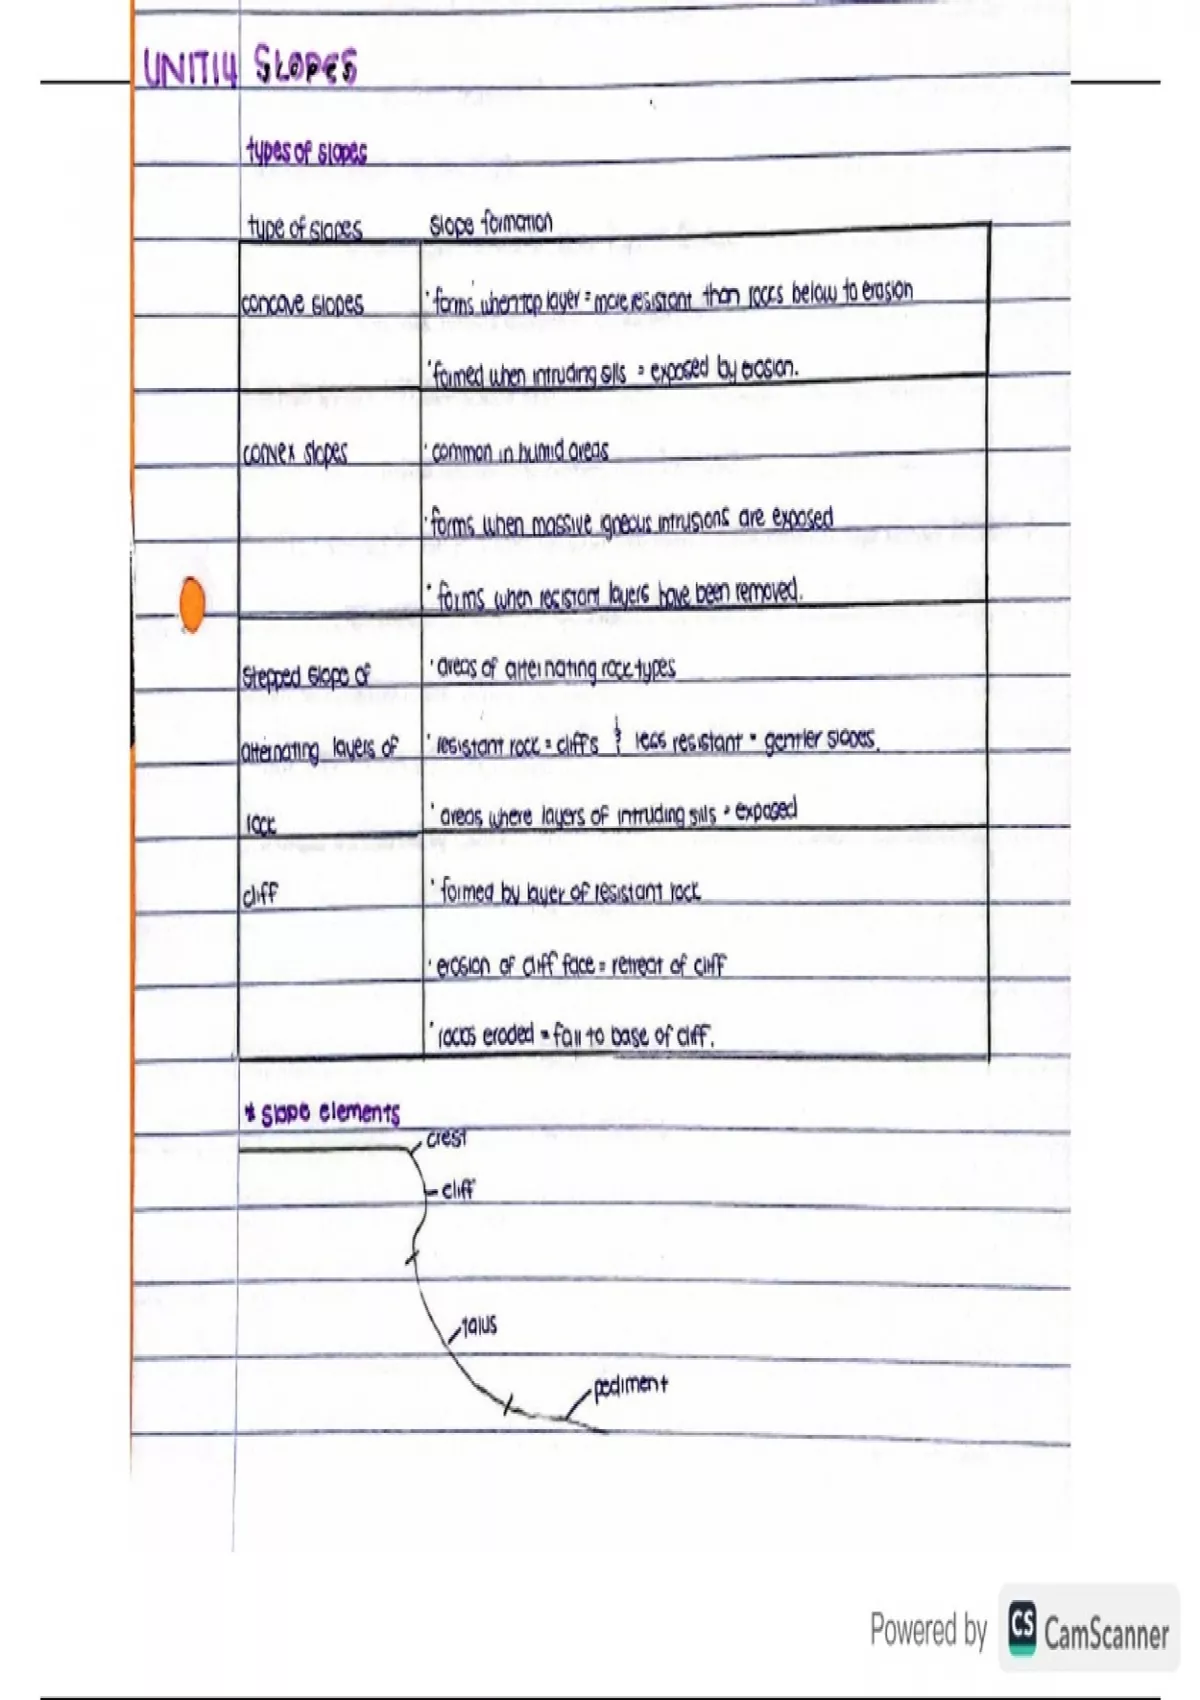 UNIT 14 SLOPES
types of slopes
type of slopes slope formation
concave slopes · forms when top layer = more resistant than rocks below to erosion
· formed when intruding sills = exposed by erosion.
convex slopes · common in humid areas
· forms when massive igneous intrusions are exposed
· forms when resistant layers have been removed.
stepped slope of · areas of alternating rock types
alternating layers of · resistant rock = cliffs & less resistant = gentler slopes.
rock · areas where layers of intruding sills = exposed
cliff · formed by layer of resistant rock
· erosion of cliff face = retreat of cliff
· rocks eroded = fall to base of cliff.
* slope elements
crest
cliff
talus
pediment
Powered by CS CamScanner